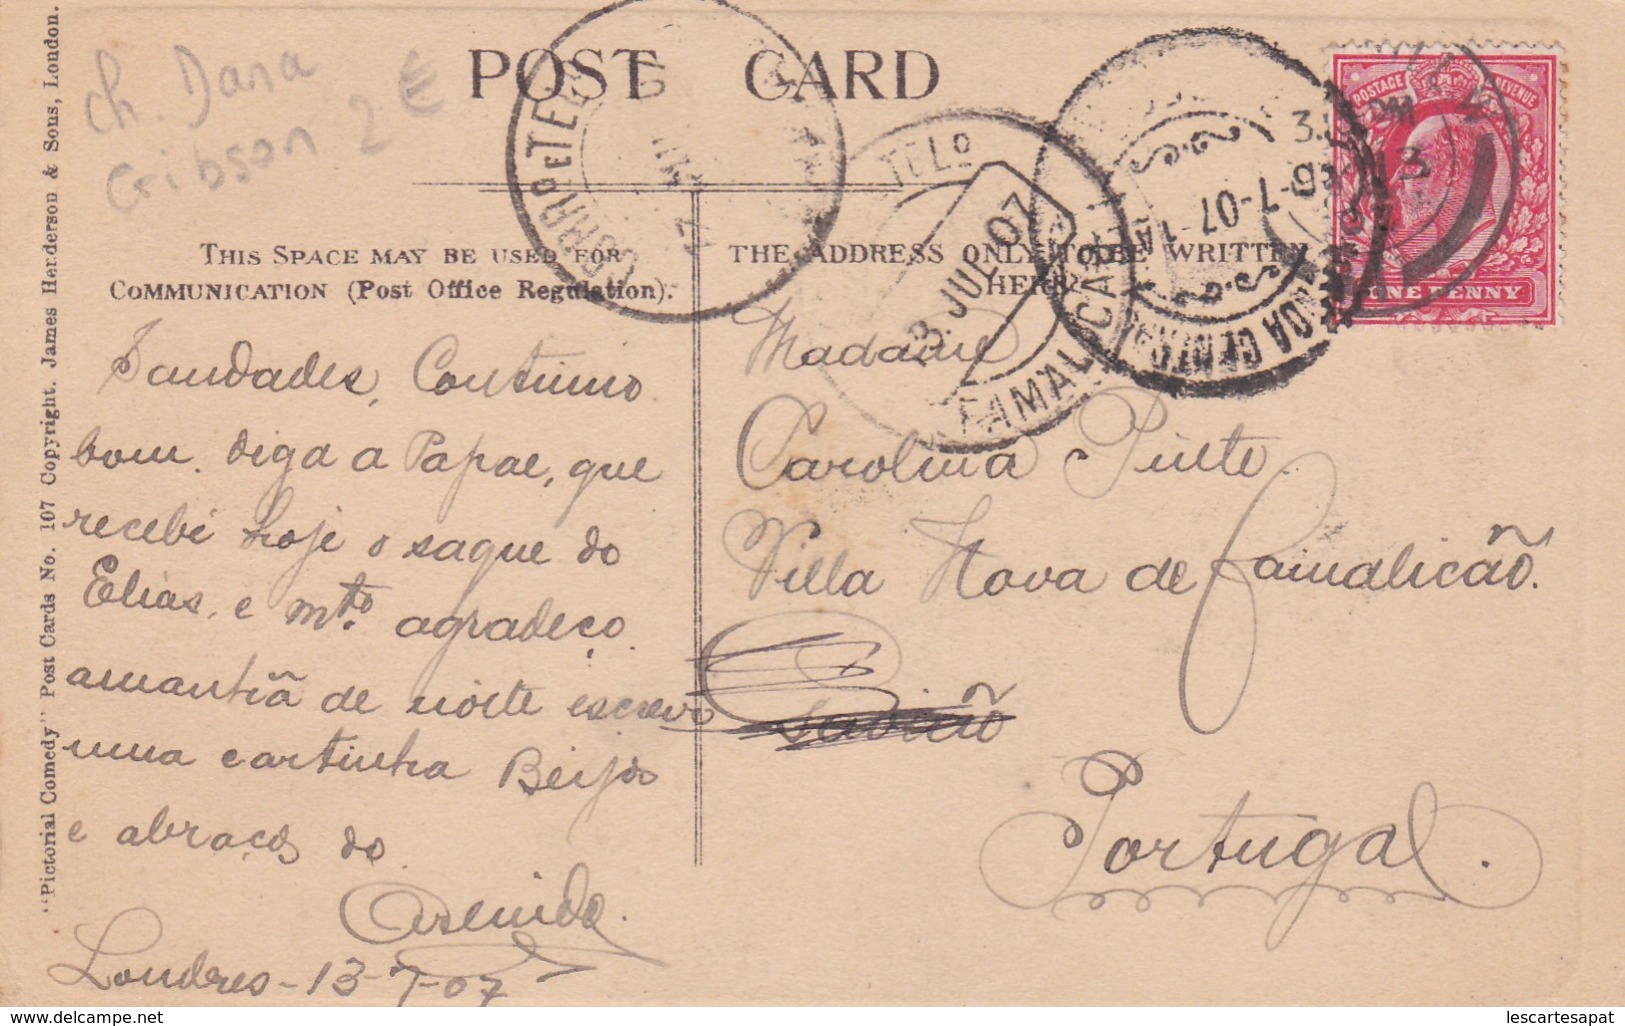 ch. Dana
Gibson 2 €
POST CARD
THIS SPACE MAY BE USED FOR
COMMUNICATION (Post Office Regulation).
THE ADDRESS ONLY TO BE WRITTEN
HERE
"Pictorial Comedy" Post Cards No. 107 Copyright. James Henderson & Sons, London.
Saudades, Continuo
bom. Diga a Papae, que
recebi hoje o saque do
Elias, e mto. agradeço
amanhã de noite escrevo
uma cartinha Beijos
e abraços do
Londres - 13-7-07
Madame
Carolina
Villa Nova de Famalicão.
Portugal.
POSTAGE REVENUE
ONE PENNY
TELO
18 JUL 07
FAMALICÃO
CENTRAL
-7-07